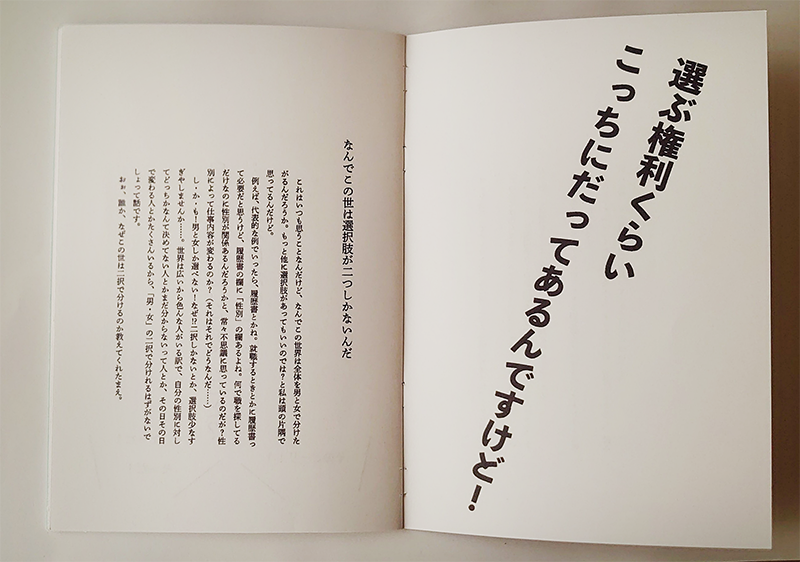 選ぶ権利くらい
こっちにだってあるんですけど!
なんでこの世は選択肢が二つしかないんだ
これはいつも思うことなんだけど、なんでこの世界は全体を男と女で分けた
がるんだろうか。もっと他に選択肢があってもいいのでは?と私は頭の片隅で
思ってるんだけど。
例えば、代表的な例でいったら、履歴書とかね。就職するときとかに履歴書っ
て必要だと思うけど、履歴書の欄に「性別」の欄あるよね。何で職を探してる
だけなのに性別が関係あるんだろうかと、常々不思議に思っているのだが?性
別によって仕事内容が変わるのか?(それはそれでどうなんだ……)
し・か・も!男と女しか選べない!なぜ!?二択しかないとか、選択肢少なす
ぎやしませんか……。世界は広いから色んな人がいる訳で、自分の性別に対し
てどっちかなんて決めてない人とかまだ分からないって人とか、その日その日
で変わる人とかたくさんいるから、「男・女」の二択で分けれるはずがないで
しょって話です。
おぉ、誰か、なぜこの世は二択で分けるのか教えてくれたまえ。